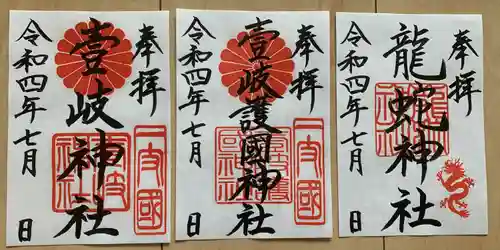 奉拝
壹岐神社
令和四年七月 日
一支國
奉拝
壹岐護國神社
令和四年七月 日
一支國
奉拝
龍蛇神社
令和四年七月 日